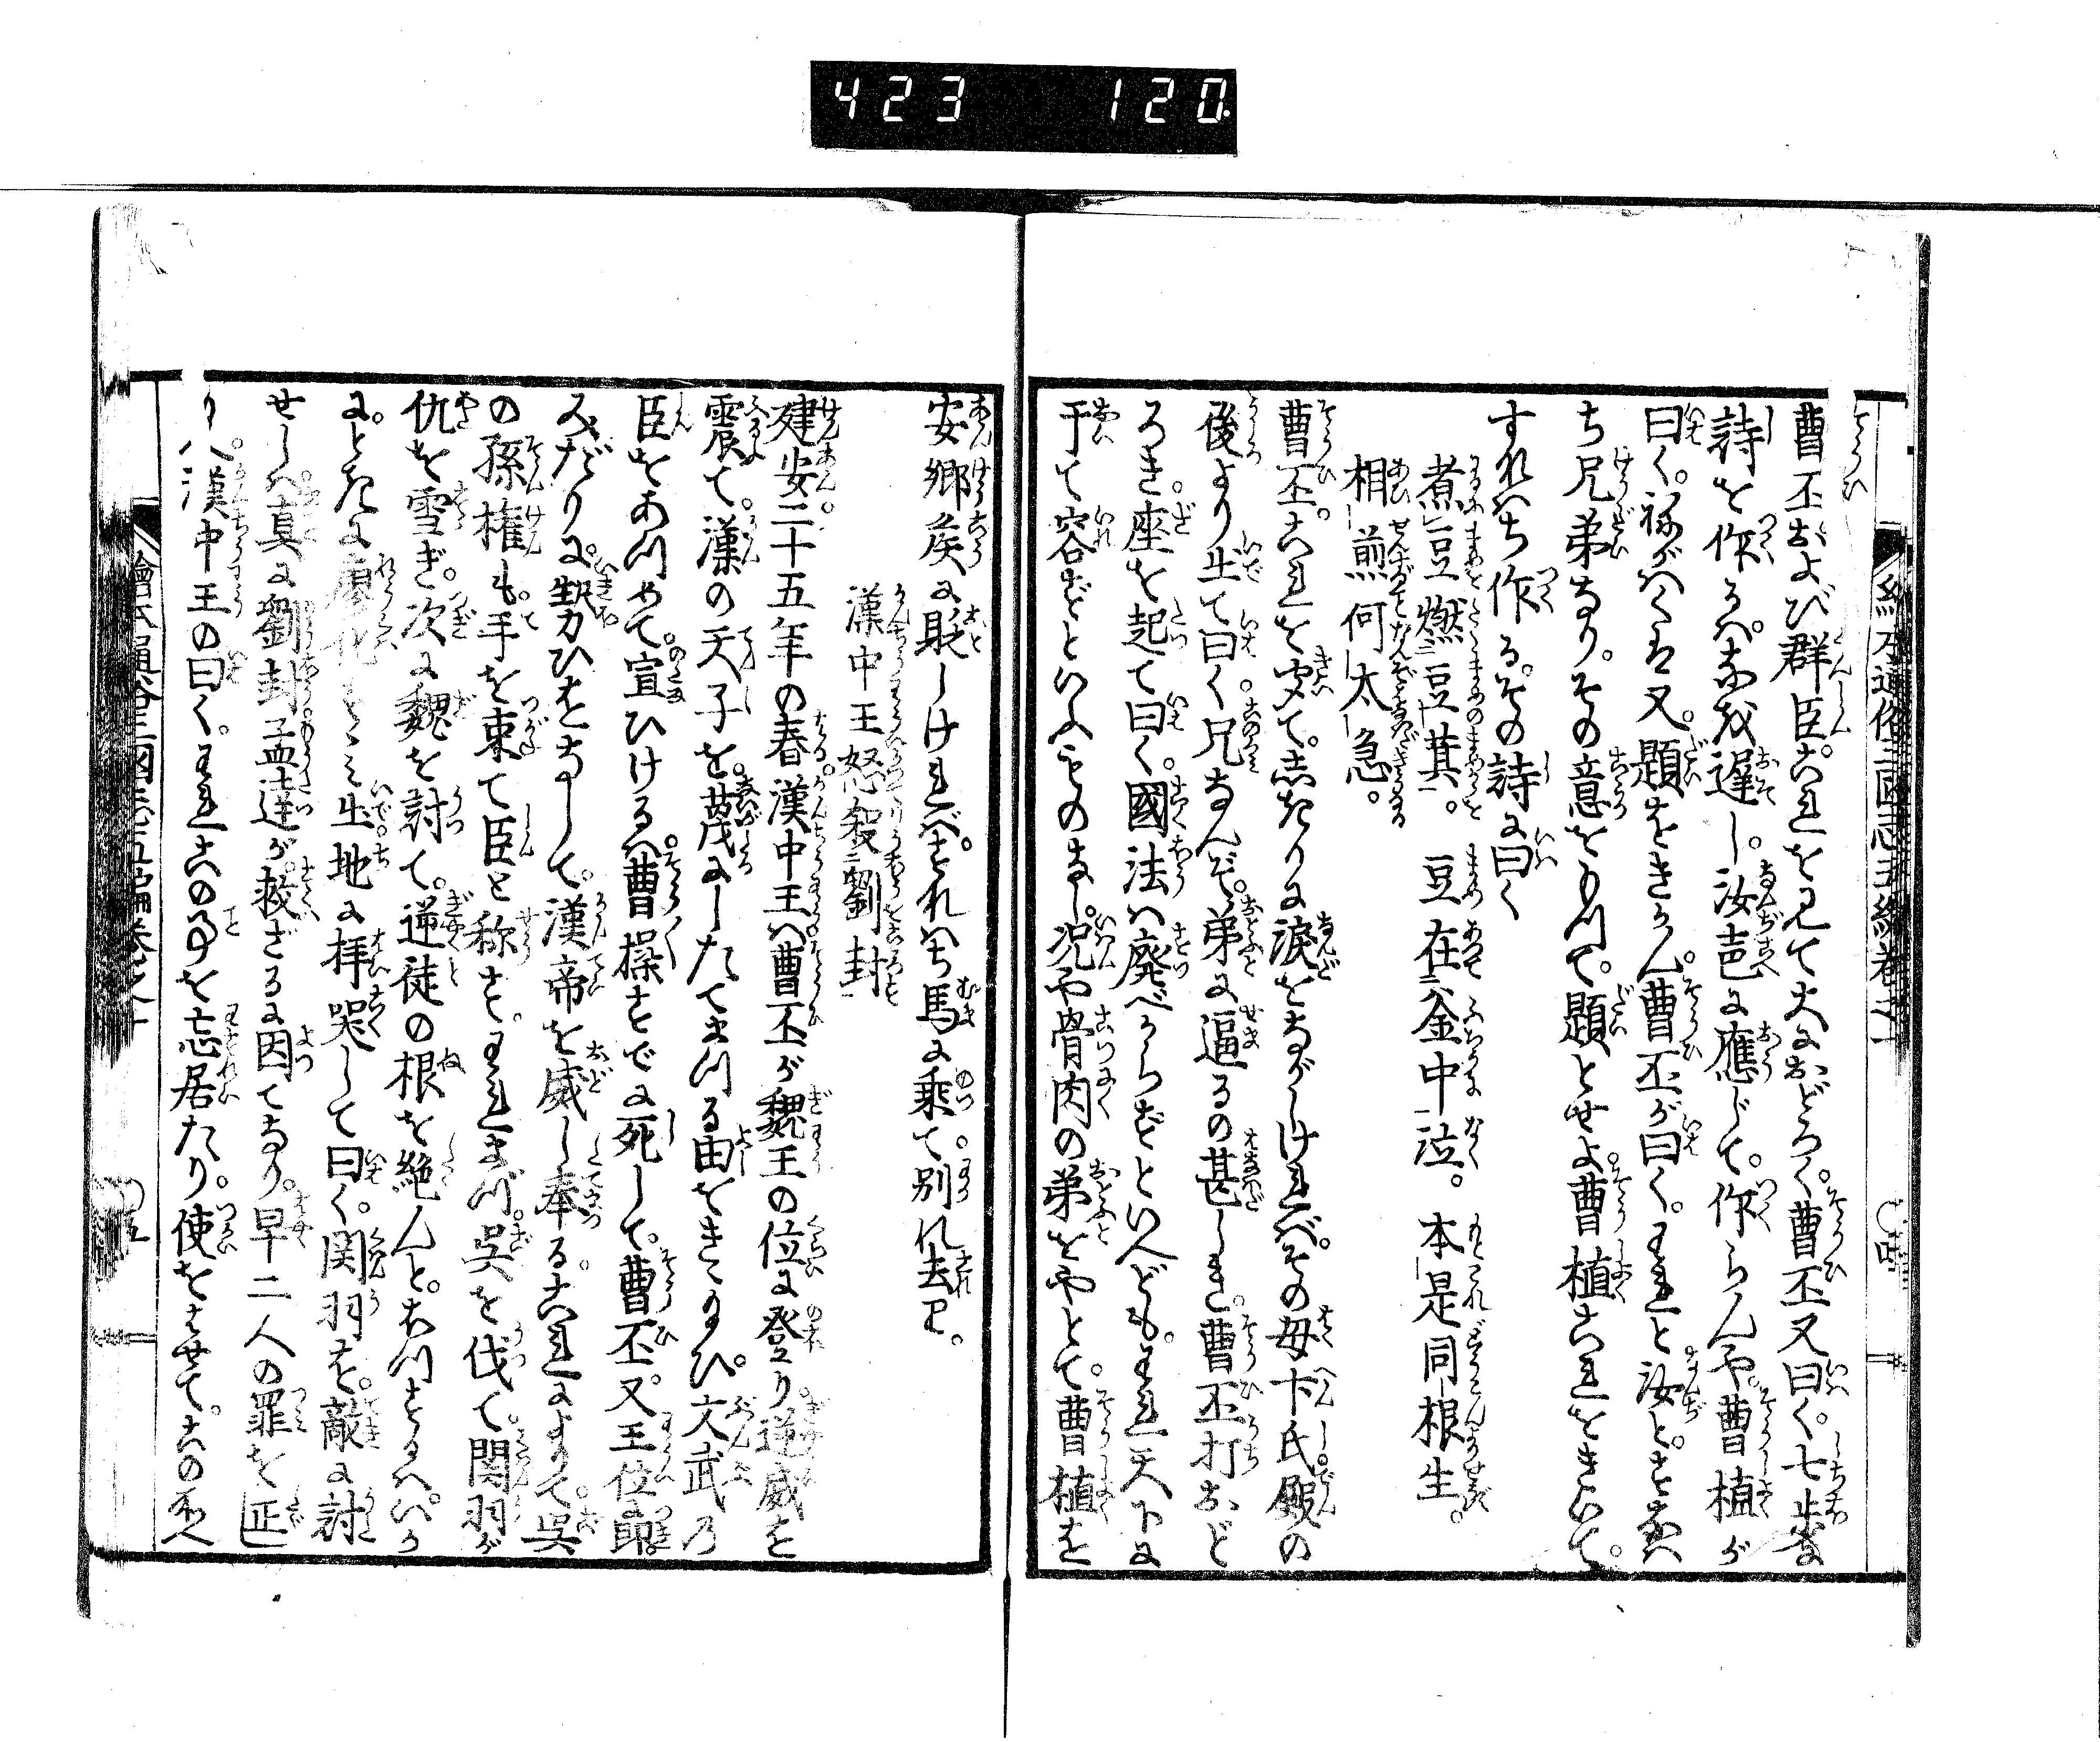 423 120
繪本通俗三國志五編卷之十
曹丕および群臣。これを見て大におどろく。曹丕又曰く。七歩に
詩を作るハなほ遅し。汝声に應じて。作らんや。曹植が
曰く。祢がハくハ又。題をきかん。曹丕が曰く。われと汝と。すなハ
ち兄弟なり。その意をもつて。題とせよ。曹植これをきいて。
すなハち作る。その詩に曰く
煮豆燃豆萁。 豆在釜中泣。 本是同根生。
相煎何太急。
曹丕。これを聞て。しきりに涙をながしければ。その母卞氏殿の
後より出て曰く。兄なんぞ。弟に逼るの甚しき。曹丕打おど
ろき。座を起て曰く。國法ハ廃べからずといへども。われ天下に
于て容ずといふものなし。况や骨肉の弟をやとて。曹植を
安郷侯に貶しければ。すなハち馬に乗て。別れ去ㇼ。
漢中王怒殺劉封
建安二十五年の春。漢中王ハ曹丕が魏王の位に登り。逆威を
震て。漢の天子を。蔑にしたてまつる由をきゝ給ひ。文武の
臣をあつめて。宣ひけるハ。曹操すでに死して。曹丕。又王位に即。
みだりに。勢ひをなして。漢帝を威し奉る。これによりて。呉
の孫権も。手を束て臣と称す。われまづ。呉を伐て。関羽が
仇を雪ぎ。次に魏を討て。逆徒の根を絶んと。おもするハ。いか
に。ときに廖化すゝみ出。地に拝哭して曰く。関羽を。敵に討
せしハ。真に劉封孟達が。救ざるに因てなり。早く二人の罪を正
し玉へ。漢中王の曰く。われこの事を忘居たり。使をはせて。この两人
繪本通俗三國志五編卷之十